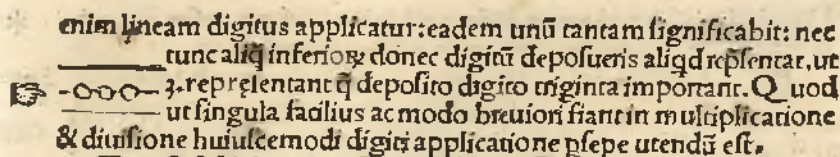 enim lineam digitus applicatur: eadem unũ tantam significabit: nec
tunc aliq̃ inferioꝝ donec digitũ deposueris aliqd rep̃sentat, ut
3. repręsentant q̃ deposito digito triginta important. Quod
ut singula facilius ac modo breuiori fiant in multiplicatione
& diuisione huiuscemodi digiti applicatione psepe utendũ est.